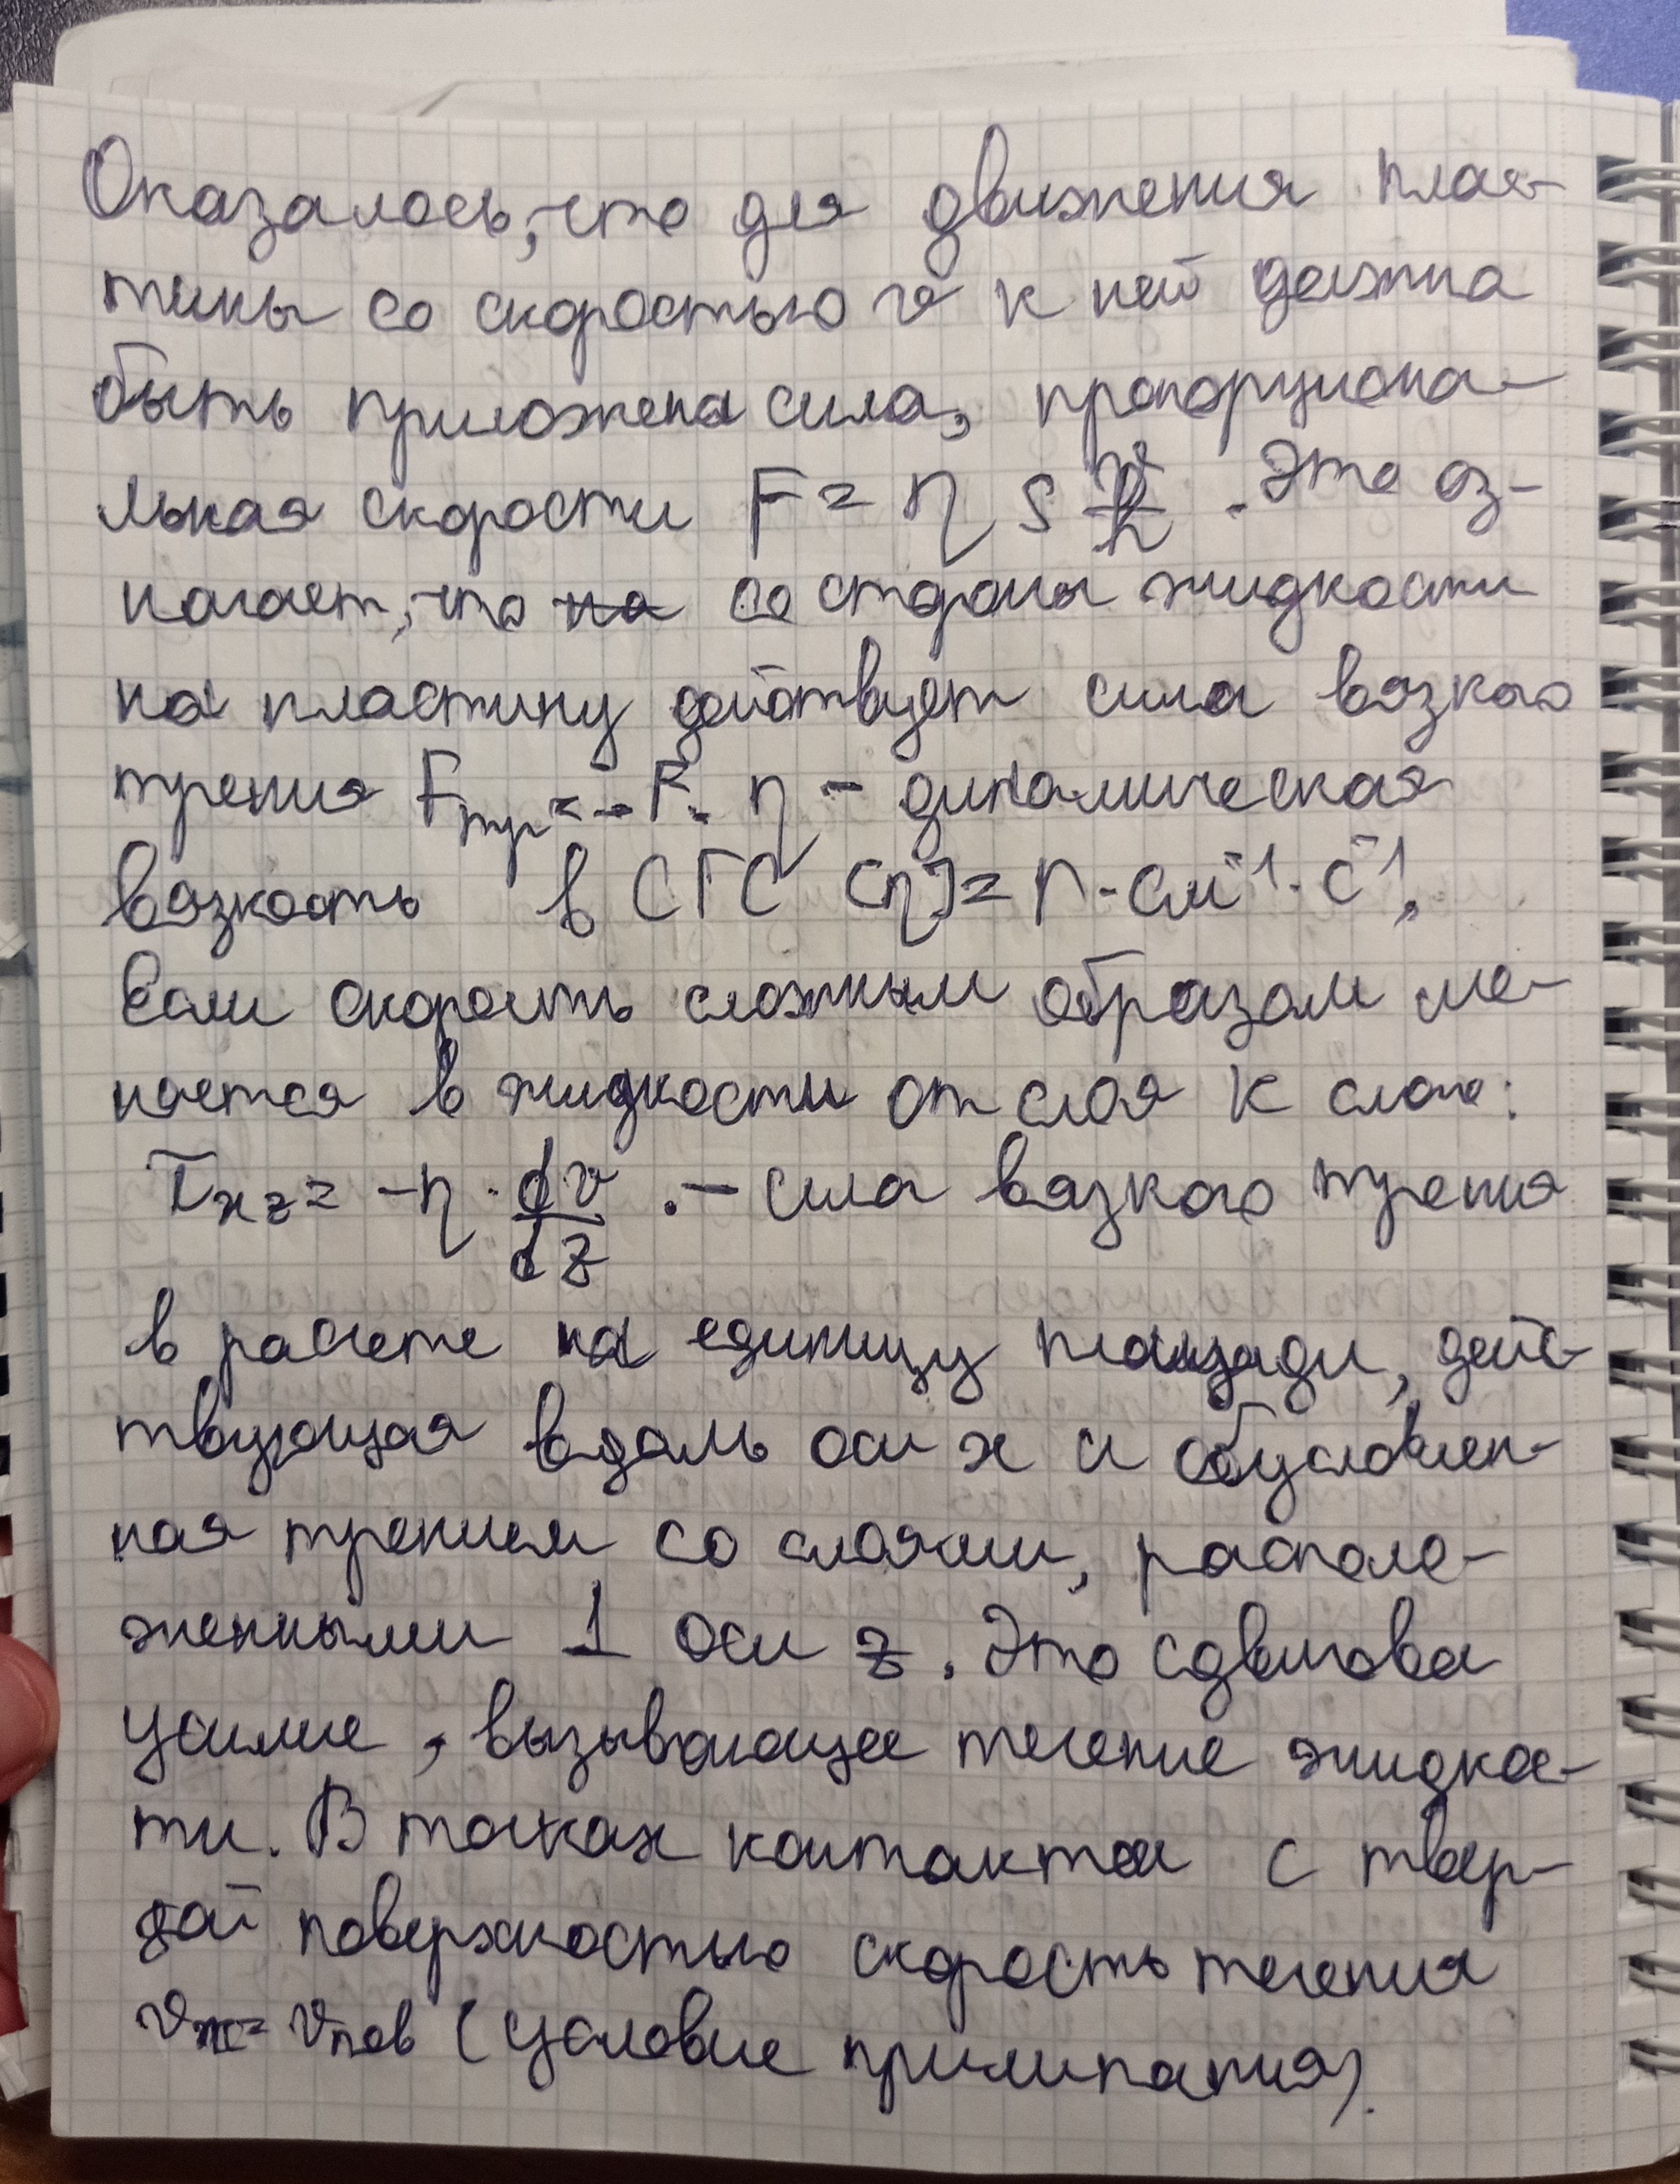 Оказалось, что для движения плас-
тины со скоростью v к ней должна
быть приложена сила, пропорциона-
льная скорости F = η S v/h. Это оз-
начает, что со стороны жидкости
на пластину действует сила вязкого
трения Fтр = -F. η - динамическая
вязкость в СГС [η] = г·см⁻¹·с⁻¹.
Если скорость сложным образом ме-
няется в жидкости от слоя к слою:
τxz = -η · dv/dz. - сила вязкого трения
в расчете на единицу площади, дейс-
твующая вдоль оси x и обусловлен-
ная трением со слоями, располо-
женными ⊥ оси z. Это сдвигова
усилие, вызывающее течение жидкос-
ти. В точках контакта с твер-
дой поверхностью скорость течения
vж = vпов (условие прилипания).